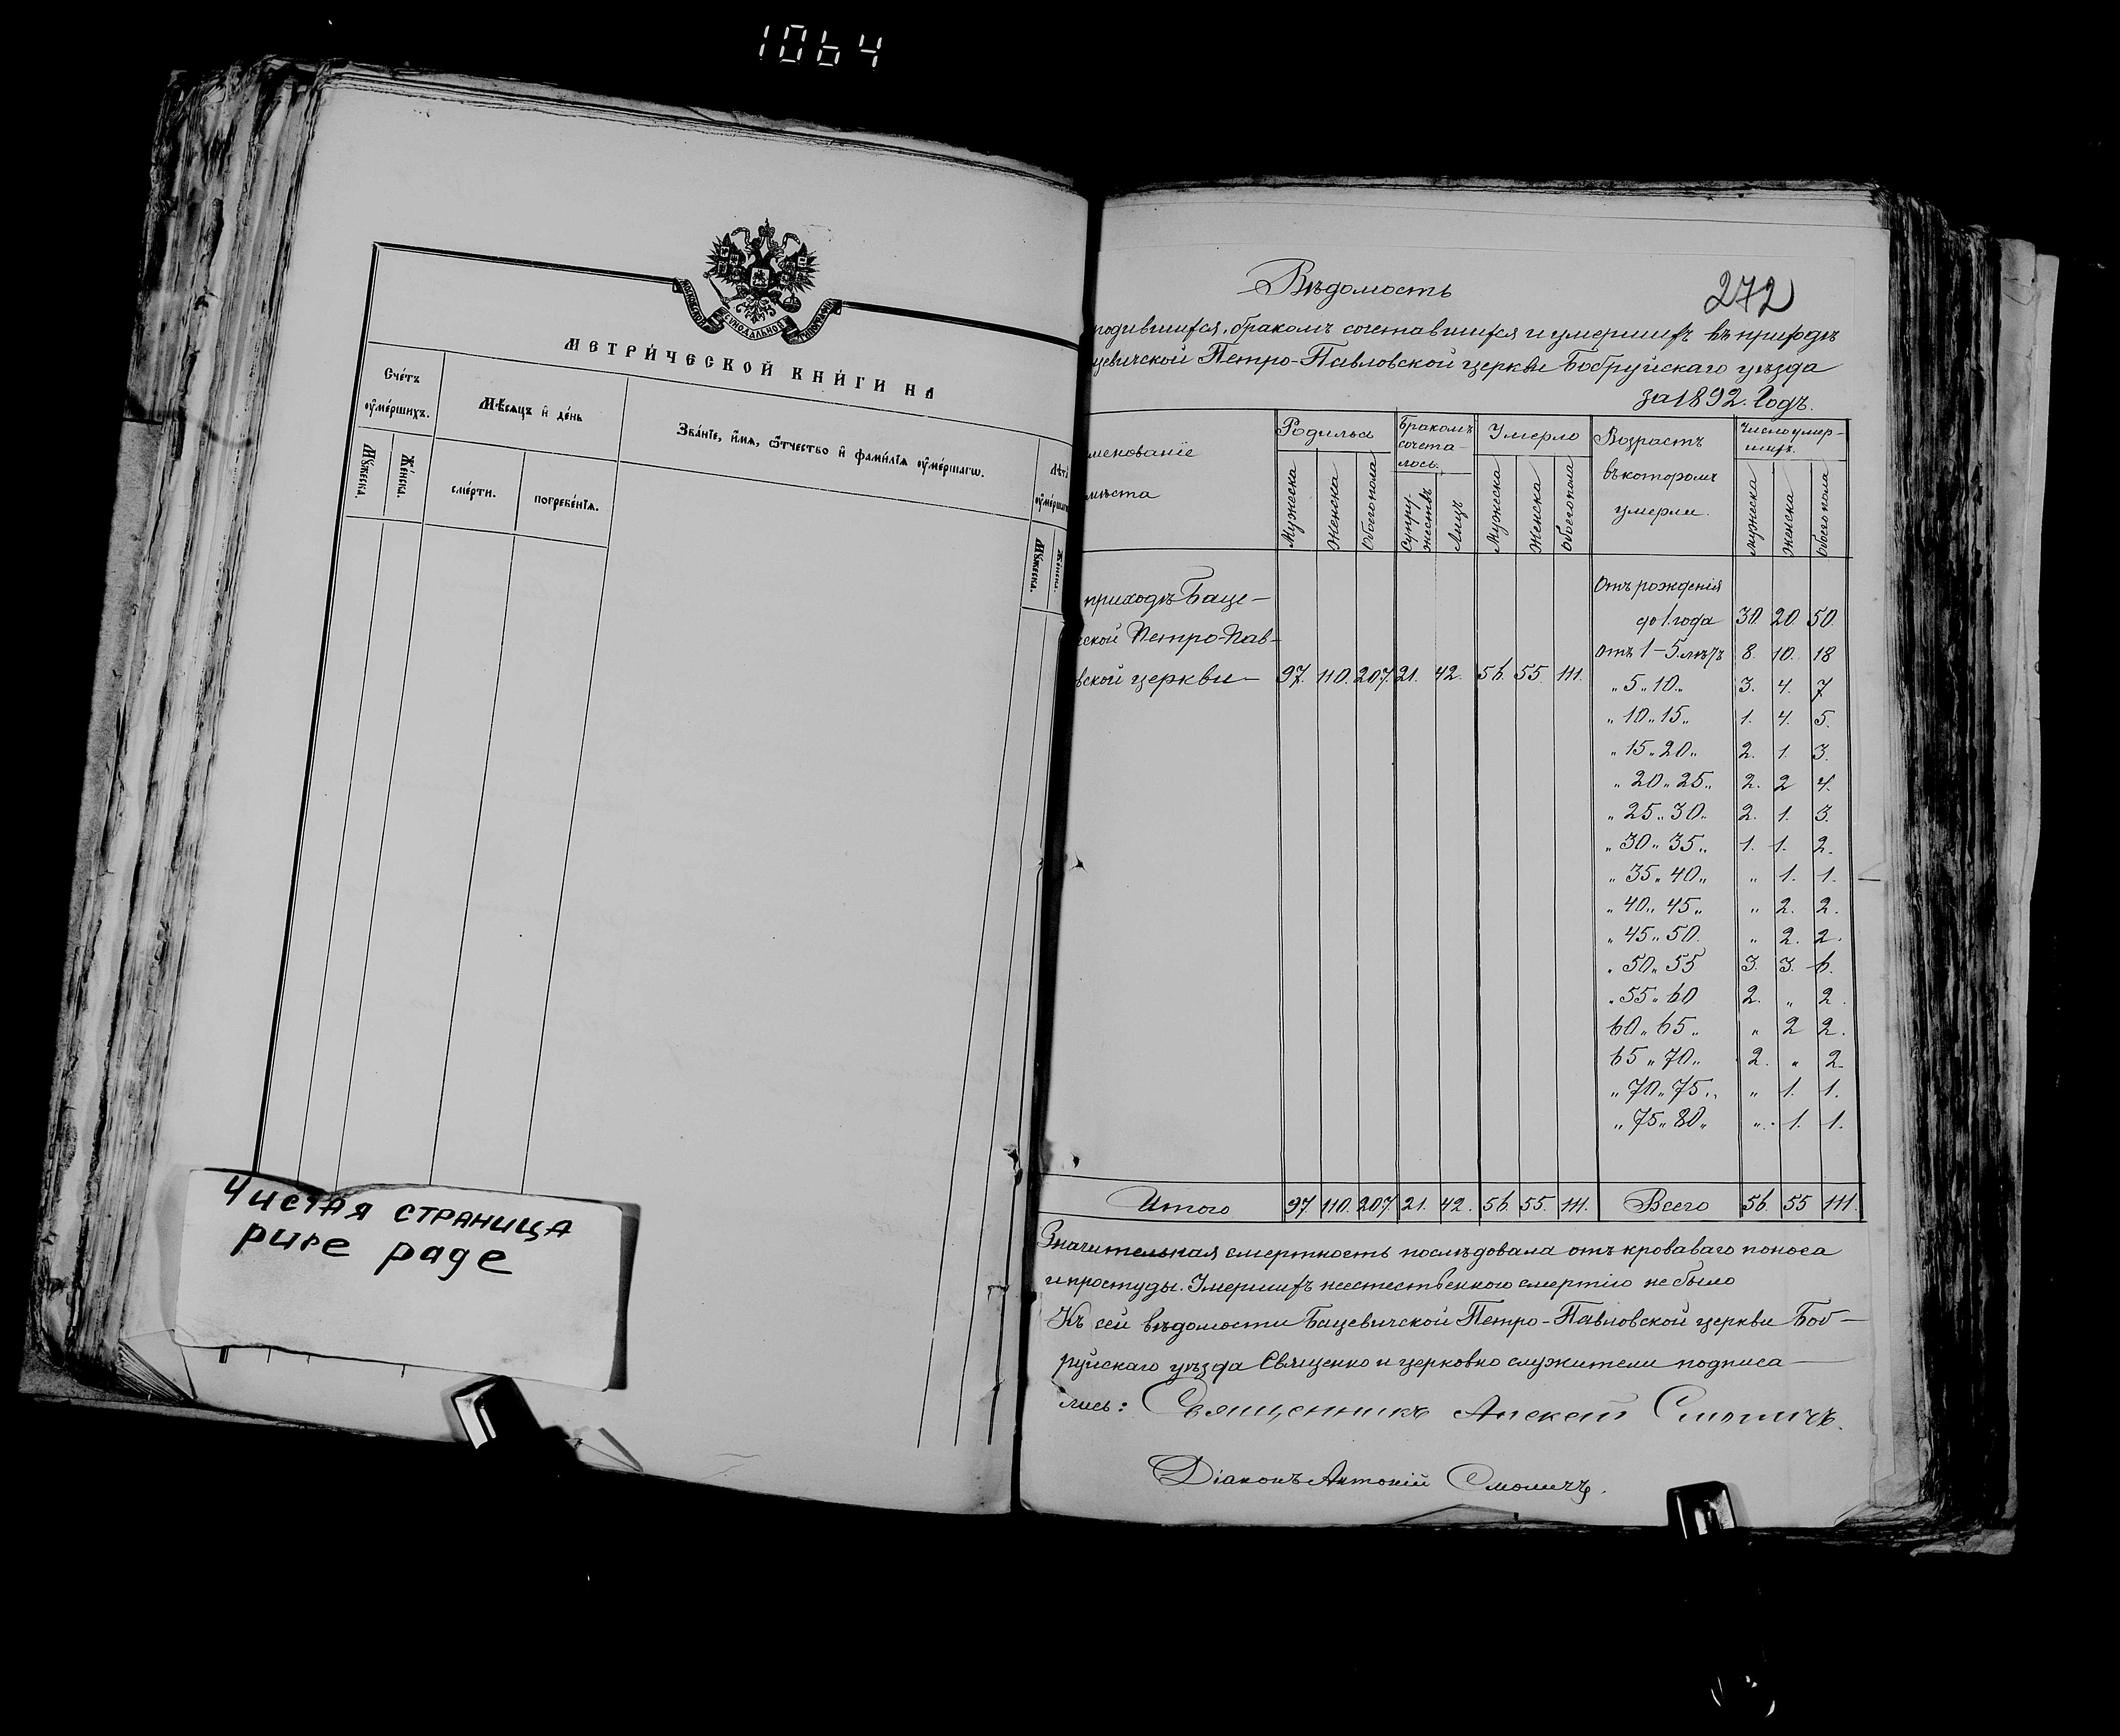 1064
МОСКОВСКОЙ СѴНОДАЛЬНОЙ
МЕТРИ́ЧЕСКОЙ КНИ́ГИ НА
Сче́тъ оу҆ме́ршихъ.
Мѣ́сяцъ и҆ де́нь
Зва́нїе, и҆́мѧ, ѻ҆́тчество и҆ фами́лїѧ оу҆ме́ршагѡ.
Лѣ́т
оу҆ме́ршаг
Мꙋ́жеска.
Же́нска.
сме́рти.
погребе́нїѧ.
Мꙋ́жеска.
Же́нска.
Чистая страница
pure page
272
Вѣдомость
родившихся, бракомъ сочетавшихся и умершихъ въ приходѣ
цевичской Петро-Павловской церкви Бобруйскаго уѣзда
за 1892. Годъ.
менованіе
мѣста
Родилось
Бракомъ сочета-лось.
Умерло
Возрастъ
въ которомъ
умерли.
Число умер-шихъ.
Мужеска Женска Обоего пола Супру-жествъ Лицъ Мужеска Женска Обоего пола мужеска женска Обоего пола
приходѣ Баце-
ской Петро-Пав-
вской церкви- 97. 110. 207. 21. 42. 56. 55. 111.
Отъ рожденія
до 1. года 30. 20. 50.
отъ 1-5. лѣтъ 8. 10. 18
„ 5 „ 10 „ 3. 4. 7
„ 10 „ 15 „ 1. 4. 5.
„ 15 „ 20 „ 2. 1. 3.
„ 20 „ 25 „ 2. 2 4.
„ 25 „ 30 „ 2. 1. 3.
„ 30 „ 35 „ 1. 1. 2.
„ 35 „ 40 „ „ 1. 1.
„ 40 „ 45 „ „ 2. 2.
„ 45 „ 50. „ 2. 2.
„ 50 „ 55 3. 3. 6.
„ 55 „ 60 2. „ 2.
60 „ 65 „ „ 2 2.
65 „ 70 „ 2. „ 2
„ 70 „ 75 „ „ 1. 1.
„ 75 „ 80 „ „ 1. 1.
Итого 97 110. 207. 21. 42. 56. 55. 111. Всего 56. 55 111.
Значительная смертность послѣдовала отъ кроваваго поноса
и простуды. Умершихъ неестественного смертію не было
Къ сей вѣдомости Бацевичской Петро-Павловской церкви Боб-
руйскаго уѣзда Священно и церковно служители подписа-
лись: Священникъ Алексей Смоличъ.
Діаконъ Антоній Смоличъ.